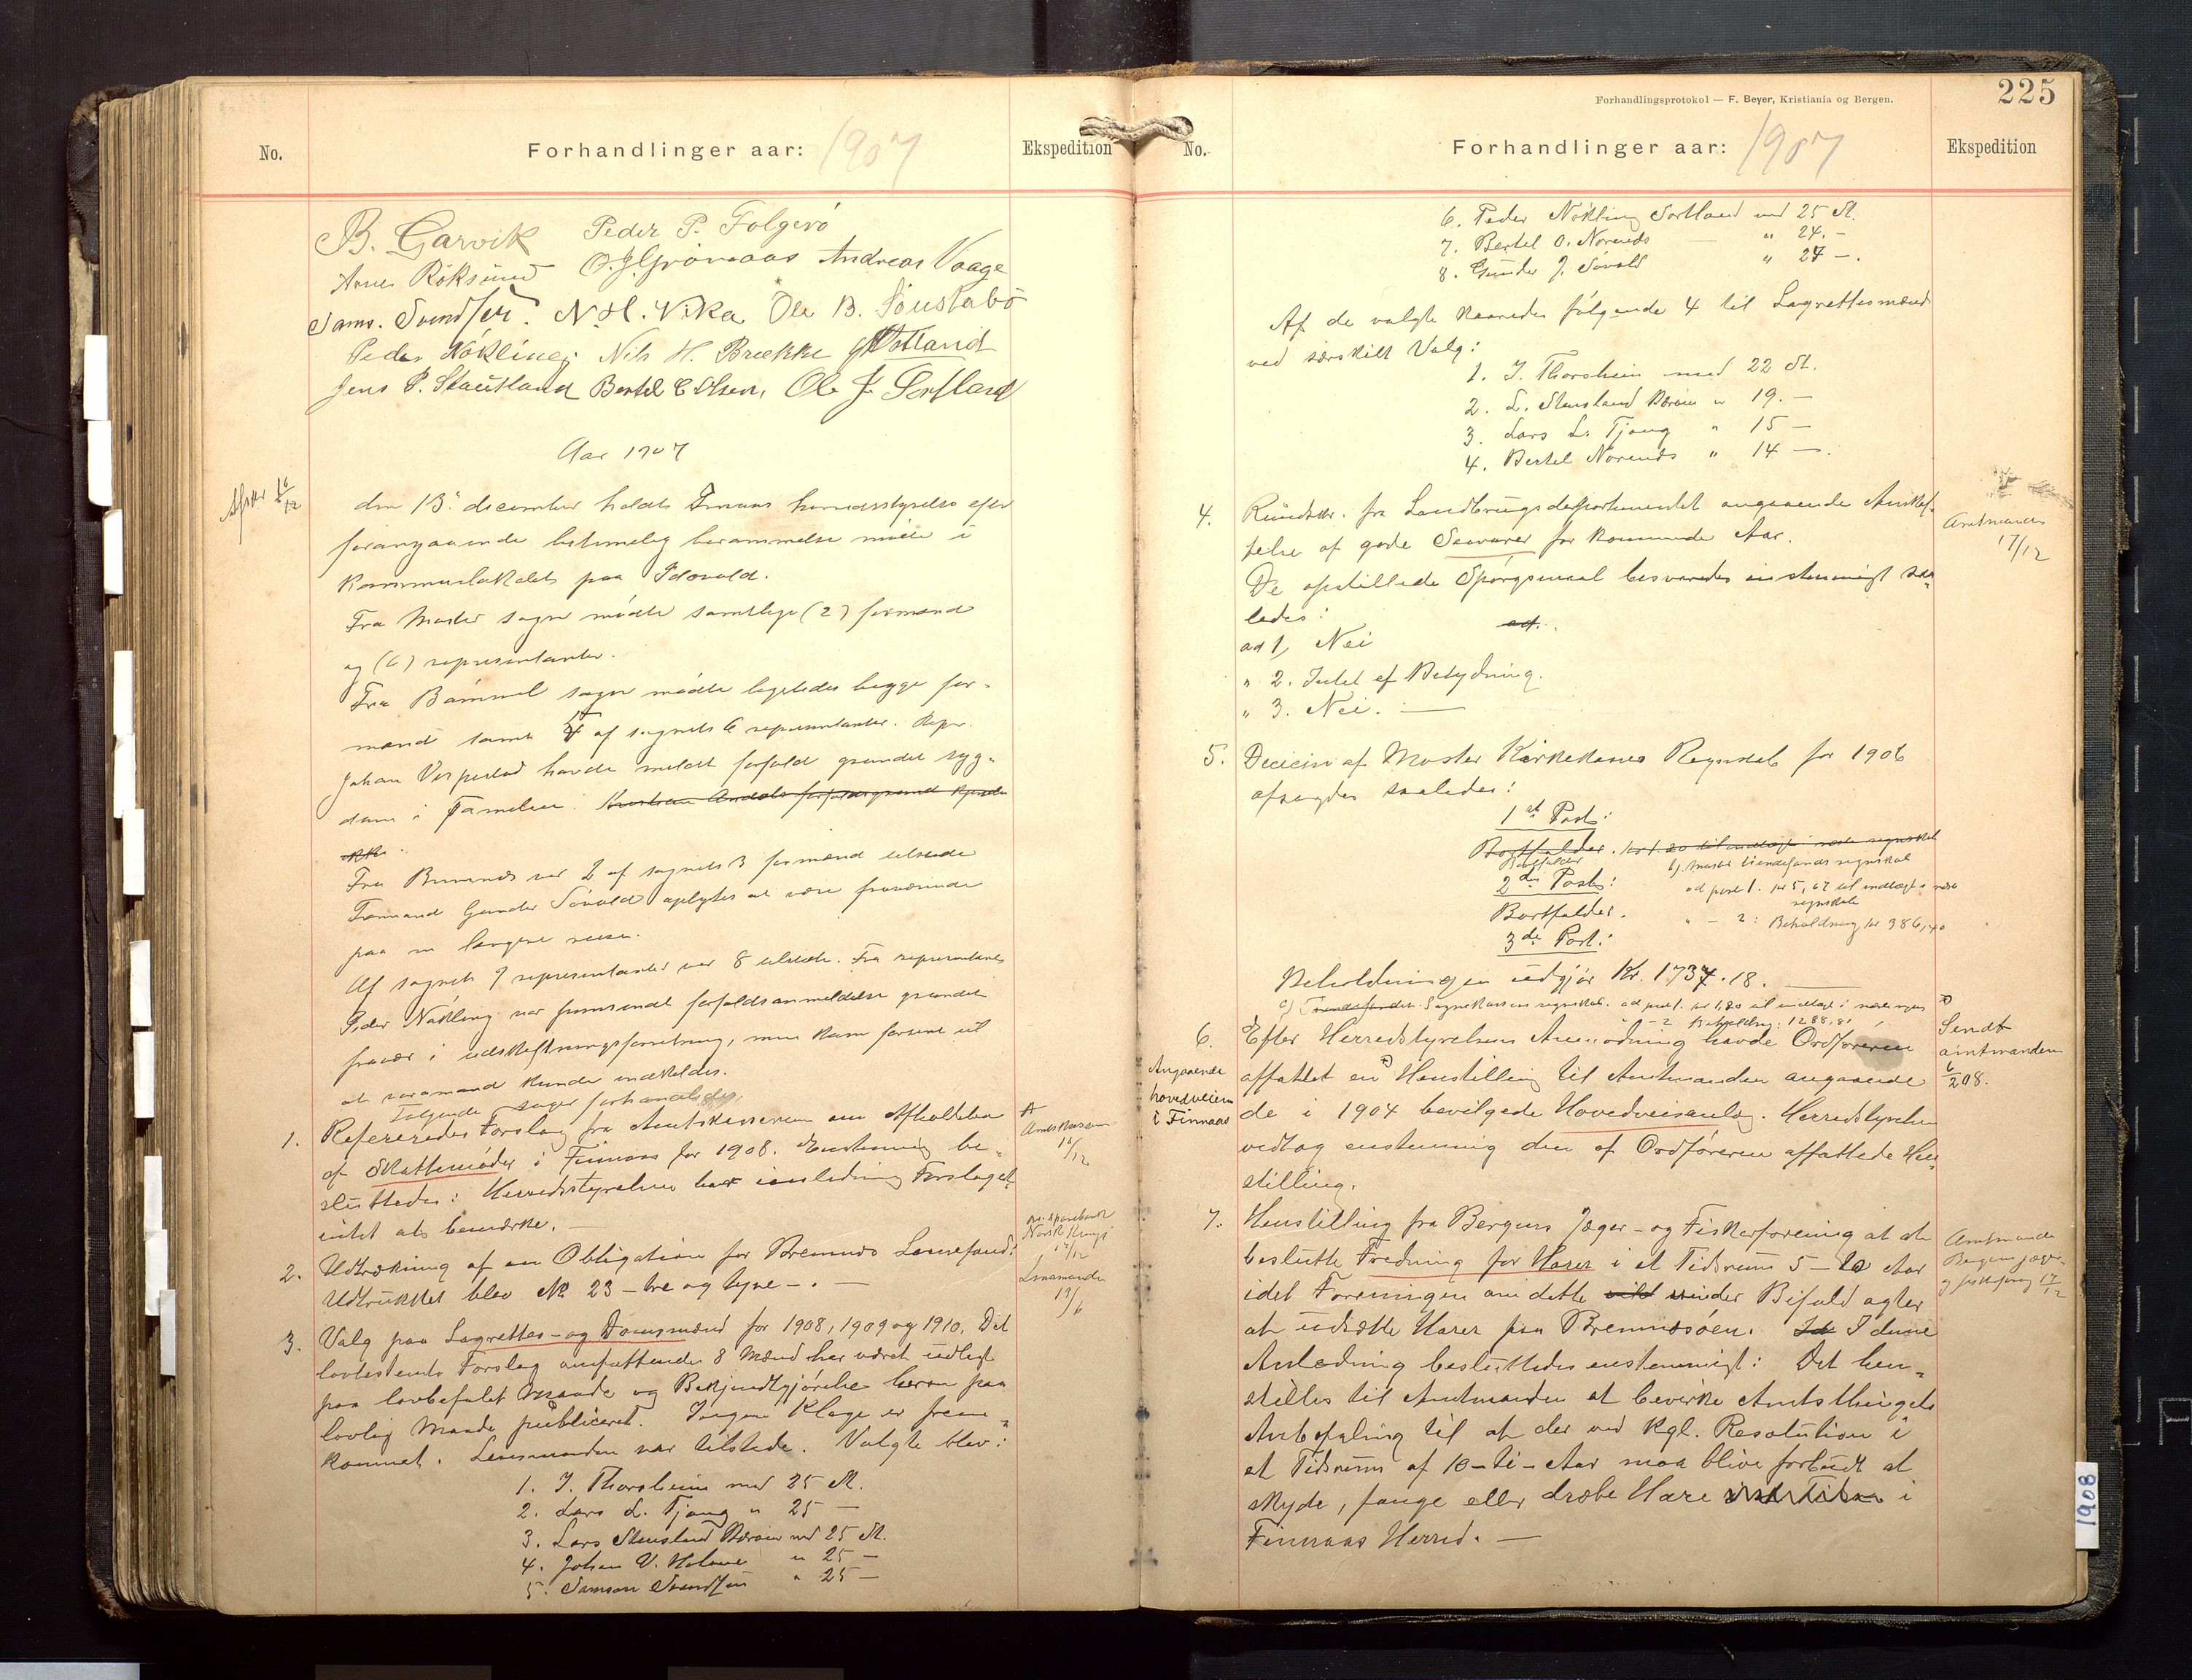 No.
Forhandlinger aar: 1907
Ekspedition
B. Garvik Peder P. Folgerö
Arne Röksund O. J. Grönaas Andreas Vaage
Sams. Svendsen. N. H. Vika Ole B. Tonstabö
Peder Nökling. Nils H. Brække
Jens P. Stautland Bertel C Olsen, Ole J. Sortland
Aar 1907
Afskr 16/12
den 13de december holdt Finnaas herredsstyrelse efter
forangaaende betimelig berammelse möde i
kommunelokalet paa Idavold.
Fra Moster sogn mødte samtlige (2) formænd
og (6) repræsentanter.
Fra Bømmel sogn mødte ligeledes begge for-
mænd samt 5 af sognets 6 repræsentanter. Repr.
Johan Vespestad havde meldt forfald grundet syg-
dom i Familien. Kristian
ikke.
Fra Bremnes var 2 af sognets 3 formænd tilstede
Formand Gunder Sövold oplystes at være fraværende
paa en længere reise.
Af sognets 9 repræsentanter var 8 tilstede. Fra repræsentant
Peder Nökling var fremsendt forfaldsanmeldelse grundet
fravær i udskiftningsforretning, men kom forsent til
at varamand kunde indkaldes.
Følgende sager forhandledes
1. Refereredes Forslag fra Amtskassereren om Afholdelse
af Skattemøder i Finnaas for 1908. Enstemmig be-
sluttedes: Herredsstyrelsen har i anledning Forslaget
intet at bemærke. —
Amtskasseren
16/12
2. Udtrækning af en Obligation for Bremnes Lånefond:
Udtrukket blev № 23 – tre og tyve –. —
17/12
3. Valg paa Lagrettes- og Domsmænd for 1908, 1909 og 1910. Det
lovbestemte Forslag omfattende 8 Mænd har været udlagt
paa lovbefalet Maade og Bekjendtgjørelse herom paa
lovlig Maade publiceret. Ingen Klage er frem-
kommet. Lensmanden var tilstede. Valgte blev:
Lensmanden
1. J. Thorsheim med 25 St.
2. Lars L. Tjong " 25 —
3. Lars Stensland Bærøen med 25 St.
4. Johan V. Holme " 25 —
5. Samson Svendsen " 25 —
225
Forhandlingsprotokol — F. Beyer, Kristiania og Bergen.
No.
Forhandlinger aar: 1907
Ekspedition
6. Peder Nökling Sortland med 25 St.
7. Bertel O. Norends — " 24. –
8. Gunder J. Sövold " 24 –.
Af de valgte kaaredes følgende 4 til Lagrettesmænd
ved særskilt Valg:
1. J. Thorsheim med 22 St.
2. L. Stensland Bærøen " 19. –
3. Lars L. Tjong " 15 –
4. Bertel Norends " 14 –.
4. Rundskr. fra Landbrugsdepartementet angaaende Anskaf-
felse af gode Saavarer for kommende Aar.
Amtmanden
17/12
De opstillede Spörgsmaal besvaredes enstemmigt saa-
ledes:
ad.
ad 1, Nei
" 2. Intet af Betydning.
" 3. Nei. —
5. Decision af Moster Kirkekasses Regnskab for 1906
afsagdes saaledes:
1ste Post:
Bortfalder. kr 1.20 til indtægt i næste regnskab
Bortfalder
b). Moster tiendefonds regnskab
2den Post:
ad post 1. kr 5,67 til indtægt i næste
regnskab
Bortfalder.
" – 2: Beholdning kr 386,40
3de Post:
Beholdningen udgjør Kr. 1737.18. —
c) Tiendefondet. Sognekassens regnskab. ad post 1. kr 1,20 til indtægt i næste regn
" – 2 Beholdning: 1288,81
6. Efter Herredstyrelsens Anmodning havde Ordføreren
affattet en Henstilling til Amtmanden angaaende
de i 1904 bevilgede Hovedveisanlæg. Herredstyrelsen
vedtog enstemmig den af Ordføreren affattede Hen-
stilling.
Angaaende
hovedveien
i Finnaas
Sendt
amtmanden
6/2 08.
7. Henstilling fra Bergens Jæger- og Fiskerforening at at
beslutte Fredning for Harer i et Tidsrum 5 – 10 Aar
idet Foreningen om dette vild vinder Bifald agter
at udsætte Harer paa Bremnesøen. Id I denne
Anledning besluttedes enstemmigt: Det hen-
stilles til Amtmanden at bevirke Amtsthingets
Anbefaling til at der ved Kgl. Resolution i
et Tidsrum af 10 – ti – Aar maa blive forbudt at
skyde, fange eller dræbe Hare i
Finnaas Herred. —
Amtmanden
Bergens jæger-
og fiskforeng 17/12
1908